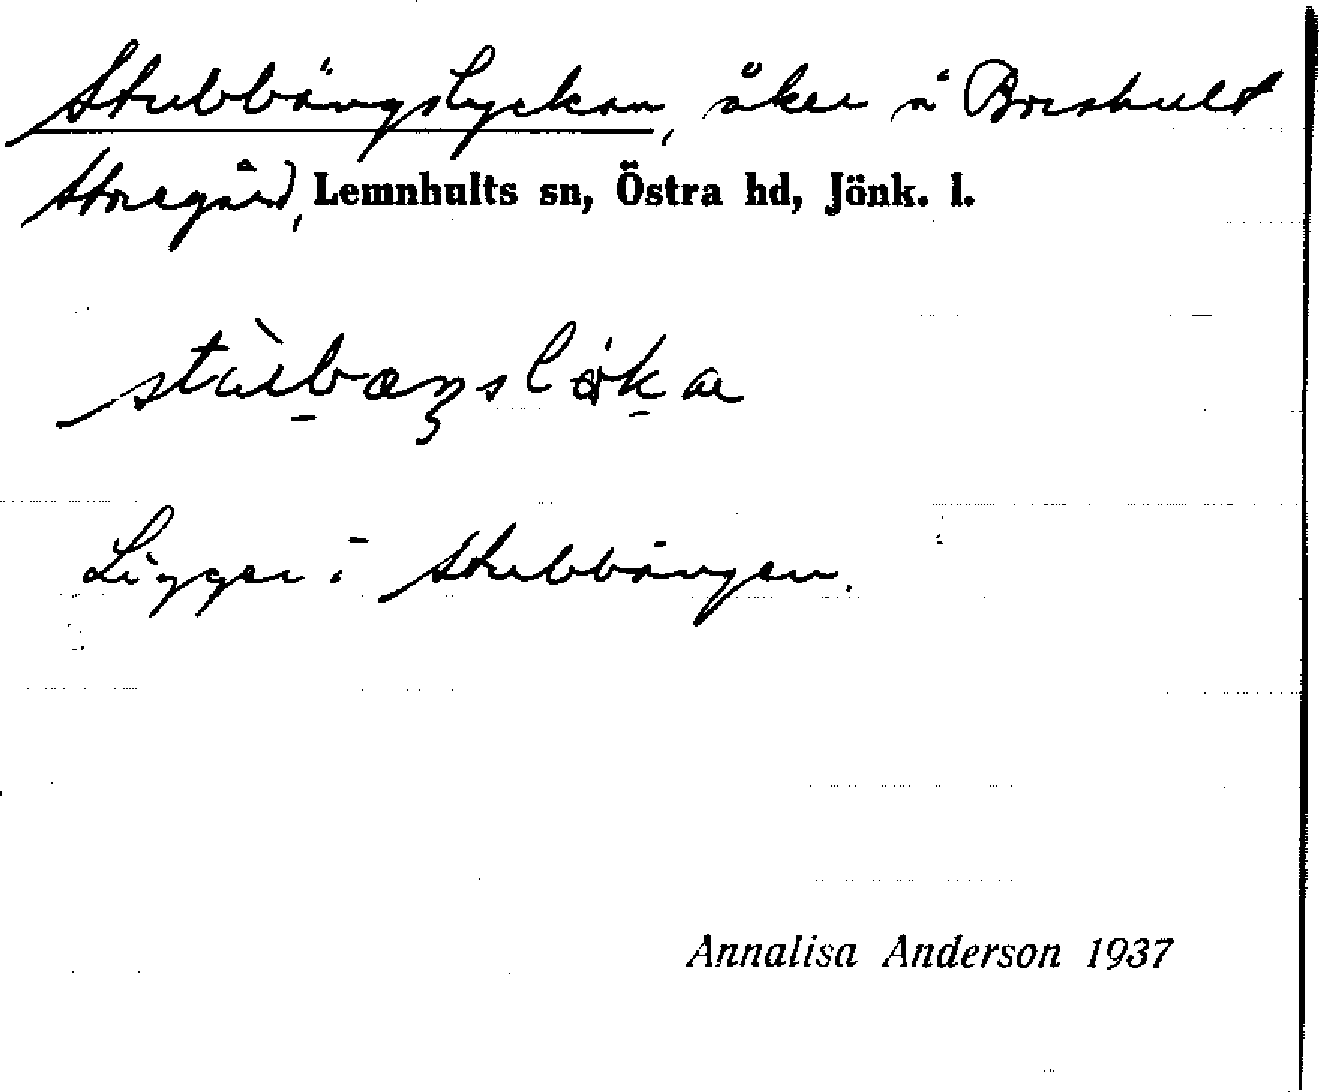 Stubbängslyckan, åker å Boeshult
Storegård, Lemnhults sn, Östra hd, Jönk. l.
Ligger i Stubbängen.
Annalisa Anderson 1937